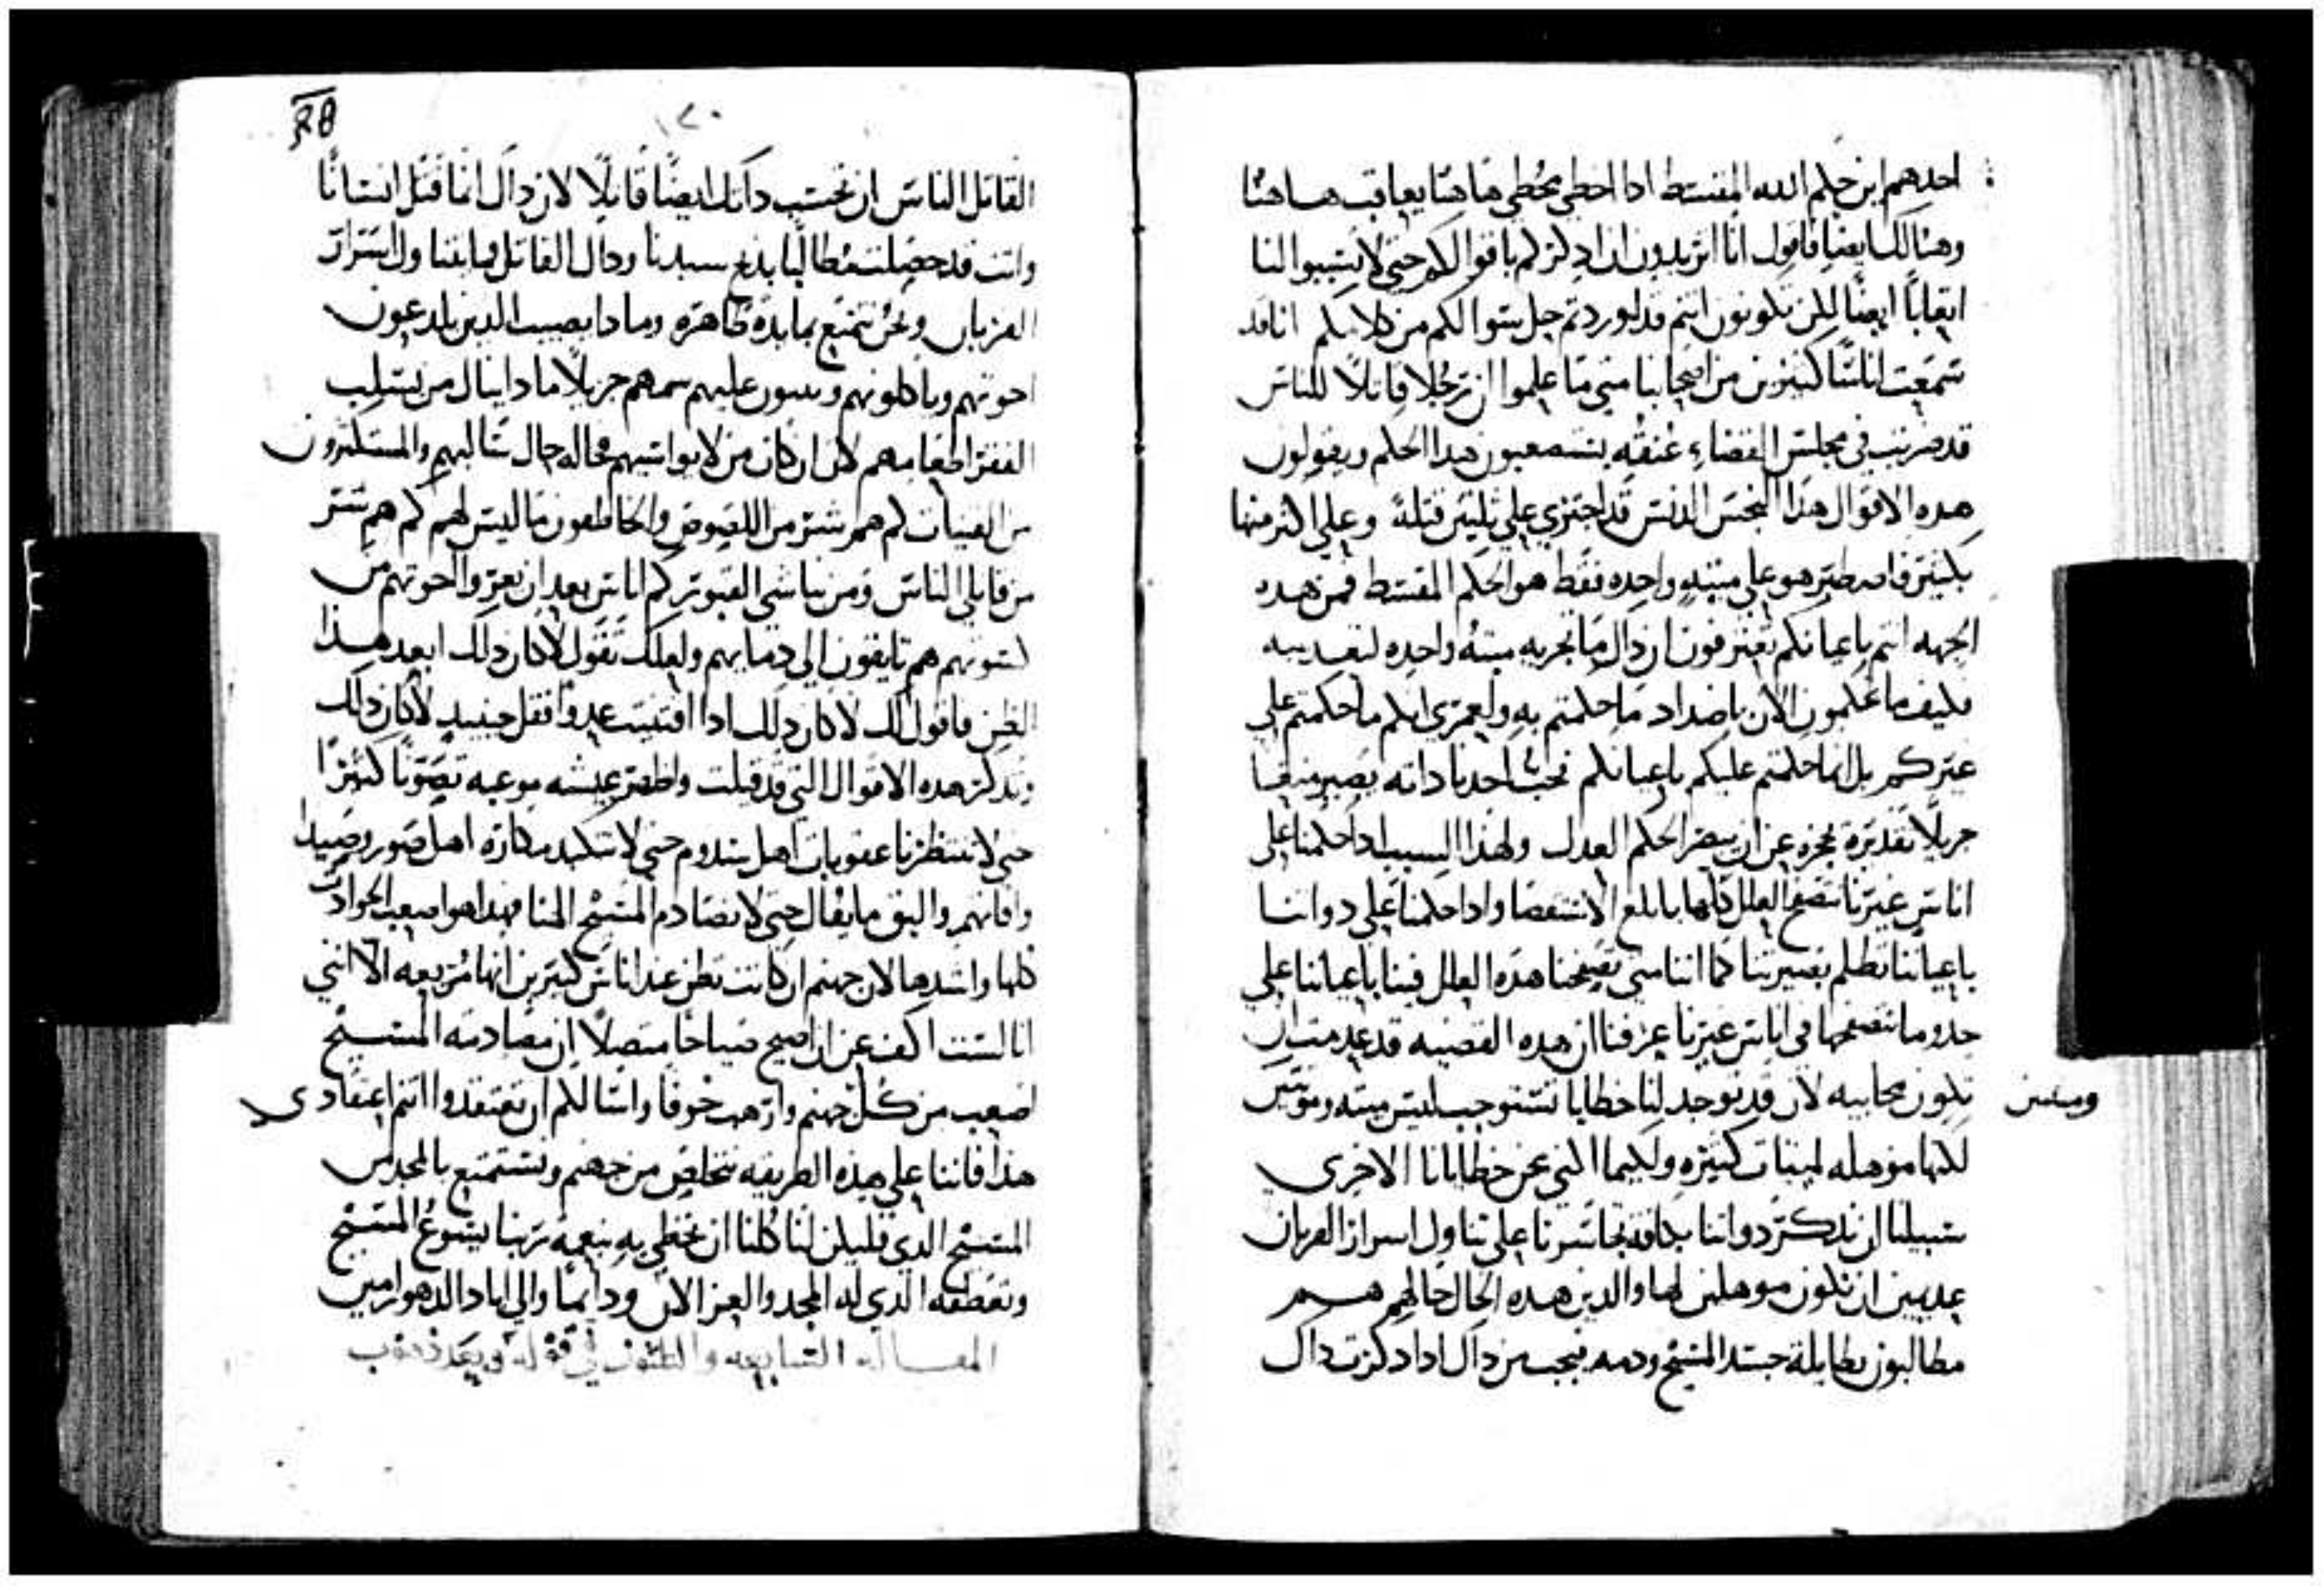 احدهم اين حكم الله المقسط ادا اخطي مخطي هاهنا يعاقب هاهنا
وهنالك ايضا فاقول انا اتريدون ان ادكركم باقوالكم حتي لا تسببوا لنا
اتعابًا ايضًا لكن تكونون انتم قد اوردتم حل سوالكم من كلامكم انا قد
سمعت اناسًا كثيرين من اصحابنا متي ما علموا ان رجلا قاتلًا للناس
قد ضربت في مجلس القضاء عنقه يستصعبون هدا الحكم ويقولون
هده الاقوال هذا النجس الدنس قد اجتري علي ثلثين قتلة وعلي اكثر منها
بكثير فاصطبر هو علي ميتةٍ واحده فقط هو الحكم المقسط فمن هده
الجهه انتم باعيانكم تعترفون ان داك ما تجزيه ميتة واحده لتعديبه
فكيف ما تحكمون الان باضداد ما حكمتم به ولعمري انكم ما حكمتم علي
غيركم بل انما حكمتم عليكم باعيانكم فحب احدنا داته يصير منعا
جزيلًا تقديره يحجزه عن ان يبصر الحكم العدل ولهذا السبب ادا حكمنا علي
اناس غيرنا نتصفح العلل كلها بابلغ الاستقصا وادا حكمنا علي دواتنا
باعياننا تظلم بصيرتنا كما اننا متي تصفحنا هذه العلل فينا باعياننا علي
حدو ما نتصفحها في اناس غيرنا عرفنا ان هده القضيه قد عدمت ان
تكون محابيه لان قد توجد لنا خطايا تستوجب ليس ميته وموتتين
وميتتين
لكنها موهله لميتات كثيره ولكيما الني عن خطايانا الاخري
سبيلنا ان ندكر دواتنا بكافة تجاسرنا علي تناول اسرار القربان
عديمين ان نكون موهلين لها والدين هده الحال حالهم هم
مطالبون بطايلة جسد المسيح ودمه فيجب من داك ادا دكرت داك
٧٠
القاتل الناس ان تحتسب داتك ايضًا قاتلًا لان داك انما قتل انسانًا
وانت قد حصلت مطالبًا بدبح سيدنا وداك القاتل فما تناول اسرار
القربان ونحن نتمتع بمايدة ظاهره وما دا يصيب الدين يلدعون
اخوتهم وياكلونهم ويبثون عليهم سمهم جزيلًا ما دا ينال من يسلب
الفقرا طعامهم لان ان كان من لا يواسيهم محاله حال سالبهم والمستكثرون
من القنيات كم هم اشر من اللصوص والخاطفون ما ليس لهم كم هم شر
من قاتلي الناس ومن نباشي القبور كم اناس بعد ان يعروا اخوتهم من
كسوتهم هم تايقون الي دمايهم ولعلك تقول لا كان دلك ابعد هذا
الظن فاقول لك لا كان دلك ادا اقتنيت عدوًا فقل حينيدٍ لا كان دلك
وتدكر هده الاقوال التي قد قيلت واظهر عيشه موعبه تصونًا كثيرًا
حتي لا تنتظرنا عقوبات اهل سدوم حتي لا نتكبد مكاره اهل صور وصيدا
وافاتهم واليق ما يقال حتي لا نصادم المسيح الهنا فهدا هو اصعب الحوادث
كلها واشدها لان جهنم ان كانت تظن عند اناس كثيرين انها مريعه الا انني
انا لست اكف عن ان اصيح صياحا متصلًا ان مصادمه المسيح
اصعب من كل جهنم وارهب خوفا واسالكم ان تعتقدوا انتم اعتقادي
هذا فاننا علي هذه الطريقه نتخلص من جهنم ونستمتع بالمجد من
المسيح الدي فليكن لنا كلنا ان نحظي به بنعمة ربنا يسوع المسيح
وتعطفه الذي له المجد والعز الان ودايمًا والي اباد الدهور امين
المقاله السابعه والثلثون في قوله وبعد ذهوب